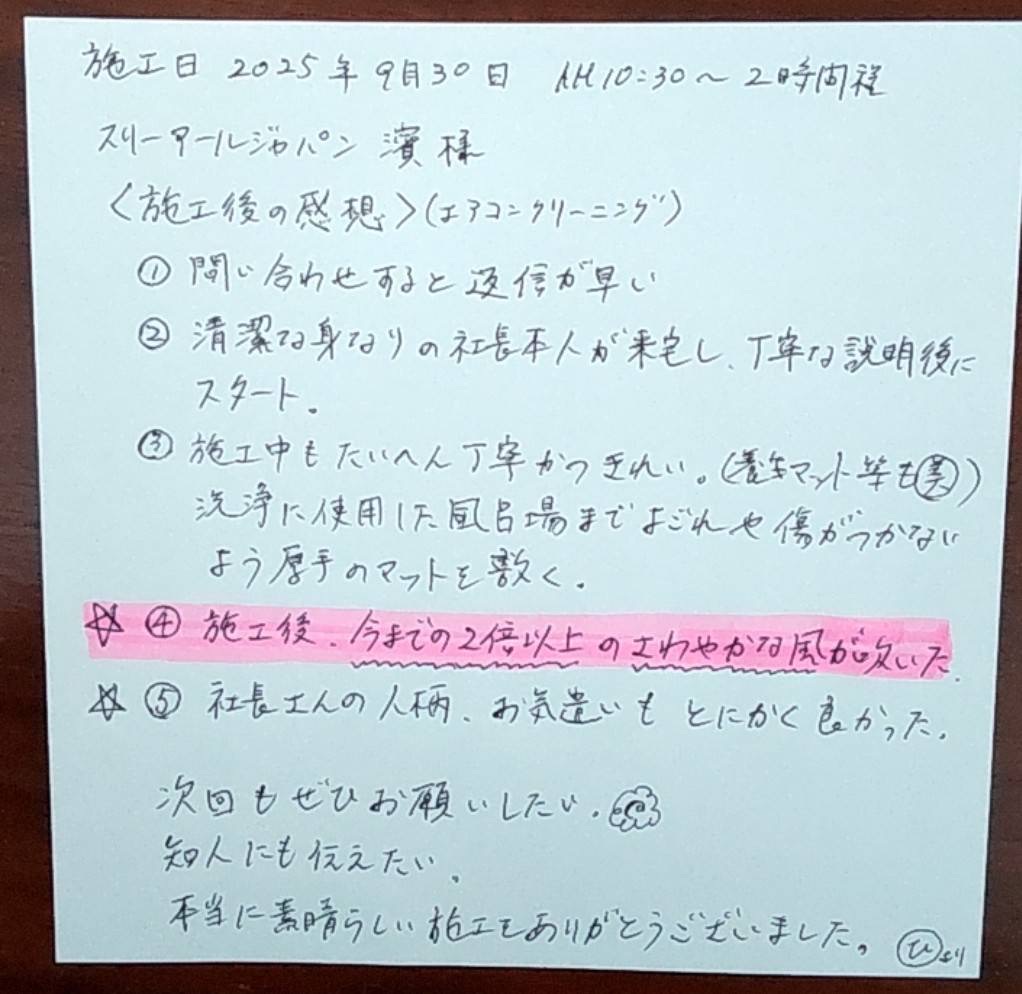 施工日 2025年9月30日 AM10:30～2時間程
スリーアールジャパン 濱様
〈施工後の感想〉(エアコンクリーニング)
① 問い合わせすると返信が早い
② 清潔な身なりの社長本人が来宅し、丁寧な説明後に
スタート。
③ 施工中もたいへん丁寧かつきれい。(養生マット等も美)
洗浄に使用した風呂場までよごれや傷がつかない
よう厚手のマットを敷く。
☆ ④ 施工後、今までの2倍以上のさわやかな風が吹いた.
☆ ⑤ 社長さんの人柄、お気遣いもとにかく良かった。
次回もぜひお願いしたい。
知人にも伝えたい。
本当に素晴らしい施工をありがとうございました。 ひより